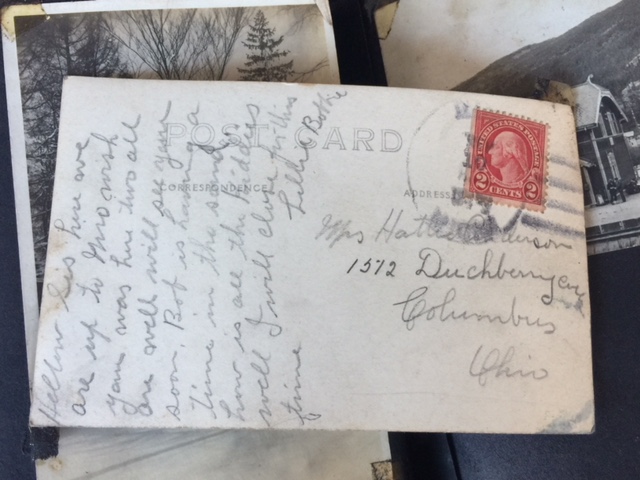 POST CARD
CORRESPONDENCE
ADDRESS
UNITED STATES POSTAGE
2 CENTS 2
Hellow Sis hire we
are up to wish
you was hire two all
are well will see you
soon. Bob is having a
time in the sand
how is all the Kiddys
well I will close for this
time Lillie Bobbie
Mrs Hattie Anderson
1572 Duchberry
Columbus
Ohio